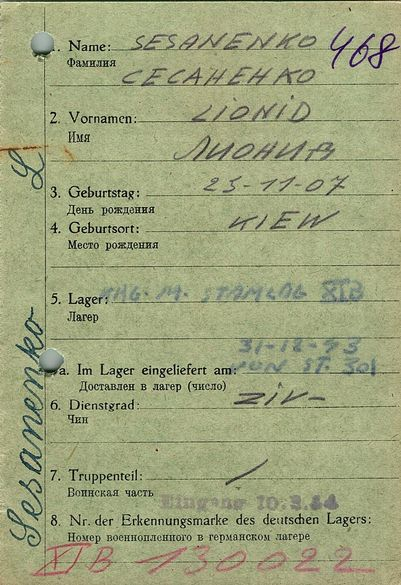 1. Name: SESANENKO 468
Фамилия
СЕСАНЕНКО
2. Vornamen: LIONID
Имя
ЛИОНИВ
3. Geburtstag: 25-11-07
День рождения
4. Geburtsort: KIEW
Место рождения
5. Lager: M. STAMLAG XIB
Лагер
31-12-43
5a. Im Lager eingeliefert am: VON ST. 301
Доставлен в лагер (число)
6. Dienstgrad: ZIV-
Чин
7. Truppenteil: /
Воинская часть
Eingang 10.3.44
8. Nr. der Erkennungsmarke des deutschen Lagers:
Номер военнопленного в германском лагере
XIB 130022
Sesanenko L